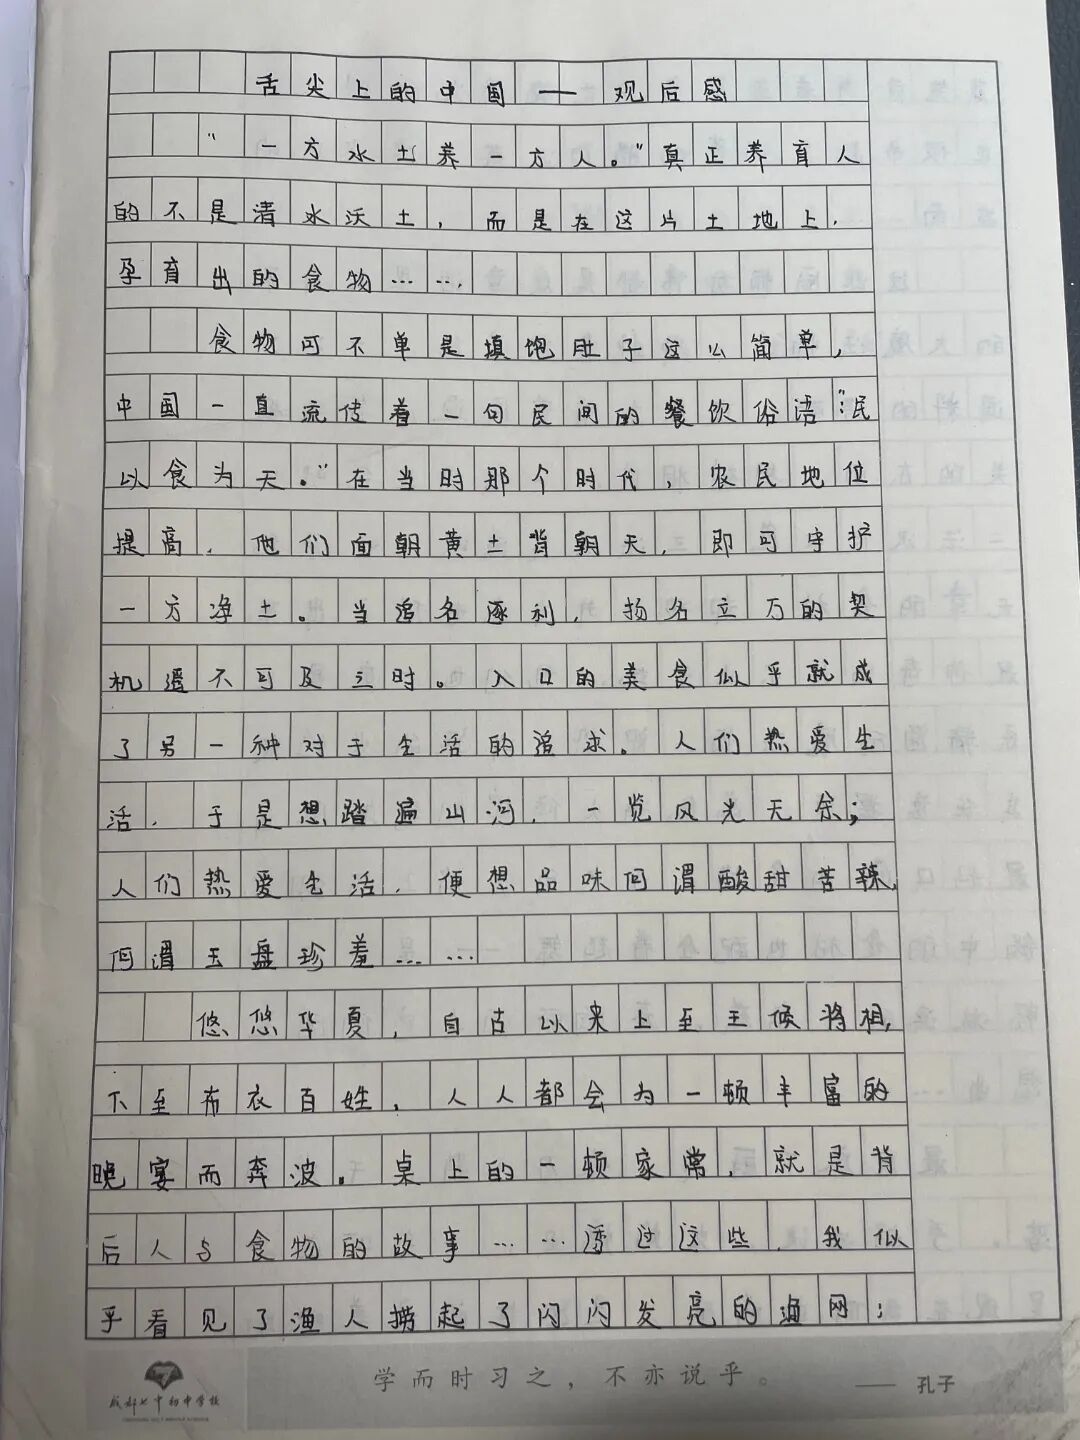 舌尖上的中国——观后感
“一方水土养一方人。”真正养育人
的不是清水沃土，而是在这片土地上，
孕育出的食物……
食物可不单是填饱肚子这么简单，
中国一直流传着一句民间的餐饮俗语：“民
以食为天。”在当时那个时代，农民地位
提高，他们面朝黄土背朝天，即可守护
一方净土。当追名逐利，扬名立万的契
机遥不可及之时。入口的美食似乎就成
了另一种对于生活的追求。人们热爱生
活，于是想踏遍山河，一览风光无余；
人们热爱生活，便想品味何谓酸甜苦辣，
何谓玉盘珍羞……
悠悠华夏，自古以来上至王候将相，
下至布衣百姓，人人都会为一顿丰富的
晚宴而奔波。桌上的一顿家常，就是背
后人与食物的故事……透过这些，我似
乎看见了渔人捞起了闪闪发亮的渔网；
成都七中初中学校
学而时习之，不亦说乎。
——孔子